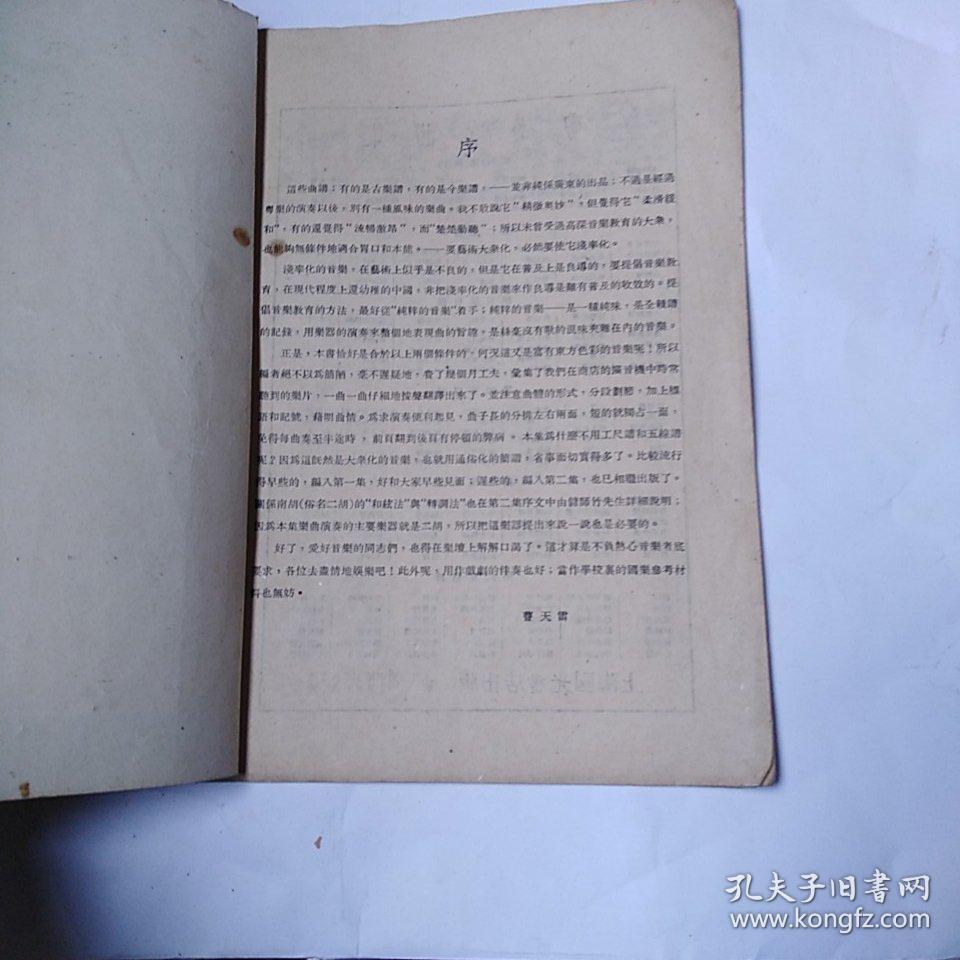 序
這些曲譜;有的是古樂譜,有的是今樂譜,——並非純係廣東的出品;不過是經過
粵樂的演奏以後,別有一種風味的樂曲。我不敢說它"精微奧妙",但覺得它"柔濟緩
和",有的還覺得"流暢激昂",而"楚楚動聽";所以未曾受過高深音樂敎育的大衆,
也能夠無條件地適合胃口和本能。——要藝術大衆化,必能要使它淺率化。
淺率化的音樂,在藝術上似乎是不良的,但是它在普及上是良導的,要提倡音樂敎
育,在現代程度上還幼稚的中國,非把淺率化的音樂來作良導是難有普及的收效的。提
倡音樂敎育的方法,最好從"純粹的音樂"着手;純粹的音樂——是一種純味,是全種譜
的記錄,用樂器的演奏來整個地表現曲的旨譜。是絲毫沒有歌的混味夾雜在內的音樂。
正是,本書恰好是合於以上兩個條件的,何況這又是富有東方色彩的音樂呢!所以
編者絕不以爲簡陋,毫不遲疑地,費了幾個月工夫,彙集了我們在商店的擴音機中時常
聽到的樂片,一曲一曲仔細地按聲翻譯出來了。並注意曲體的形式,分段劃節,加上標
語和記號,藉明曲情。爲求演奏便利起見,曲子長的分排左右兩面,短的就獨占一面,
免得每曲奏至半途時,前頁翻到後頁有停頓的弊病。本集爲什麼不用工尺譜和五線譜
呢?因爲這旣然是大衆化的音樂,也就用通俗化的簡譜,省事而切實得多了。比較流行
得早些的,編入第一集,好和大家早些見面;遲些的,編入第二集,也已相繼出版了。
關係南胡(俗名二胡)的"和絃法"與"轉調法"也在第二集序文中由錢師竹先生詳細說明;
因爲本集樂曲演奏的主要樂器就是二胡,所以把這樂器提出來說一說也是必要的。
好了,愛好音樂的同志們,也得在樂壇上解解口渴了。這才算是不負熱心音樂者底
要求,各位去盡情地娛樂吧!此外呢,用作戲劇的伴奏也好;當作學校裏的國樂參考材
料也無妨。
曹天雷
上海國光書店出版
孔夫子旧書网
www.kongfz.com